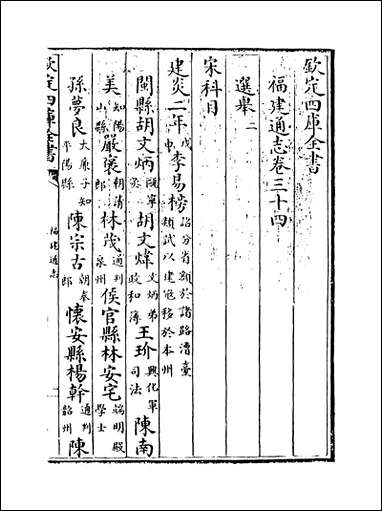 欽定四庫全書
福建通志卷三十四
選舉二
宋科目
建炎二年戊申李易榜詔分省額於諸路漕臺類試以建寇移於本州
閩縣胡文炳胡文煒文炳弟政和簿王玠興化軍司法陳南
美知陽山縣嚴褒朝請郎林茂通判泉州侯官縣林安宅端明殿學士
孫夢良大廉子知平陽縣陳宗古朝奉郎懷安縣楊幹通判韶州陳
欽定四庫全書
福建通志